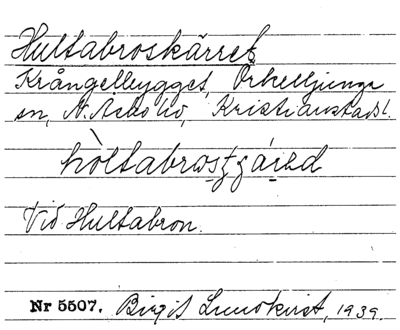 Hultabroskärret
Krångelbygget, Örkelljunga
sn, N. Åsbo hd, Kristianstads l.
Vid Hultabron.
Nr 5507. Birgit Lundkvist, 1939.